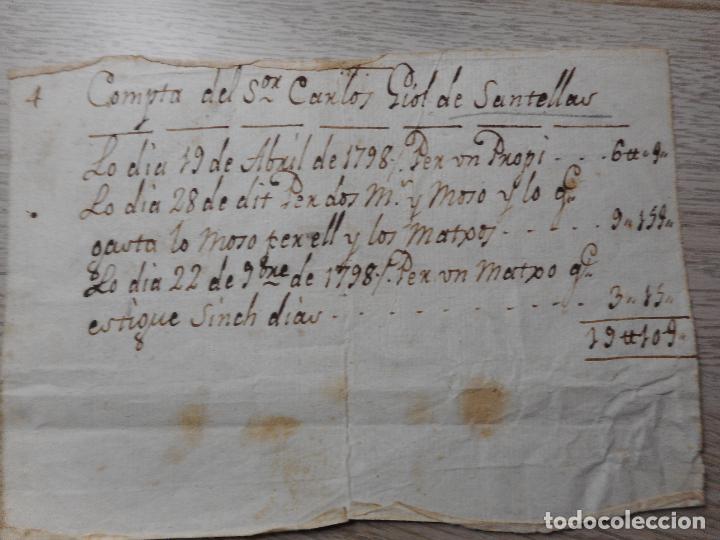 4 Compta del S.or Carlos Giol de Santellas
Lo dia 19 de Abril de 1798/. Per un Propi - - . 6 tt " 9 "
Lo dia 28 de dit Per dos M.s y Moso y lo q.e
gasta lo Moso per ell y los Matxos - - - - . 9 " 15 9 "
Lo dia 22 de 9bre de 1798/. Per un Matxo q.e
estigue Sinch dias - - - - - - - - - - 3 " 15 "
19 tt 10 9 "
todocoleccion
todocoleccion.net